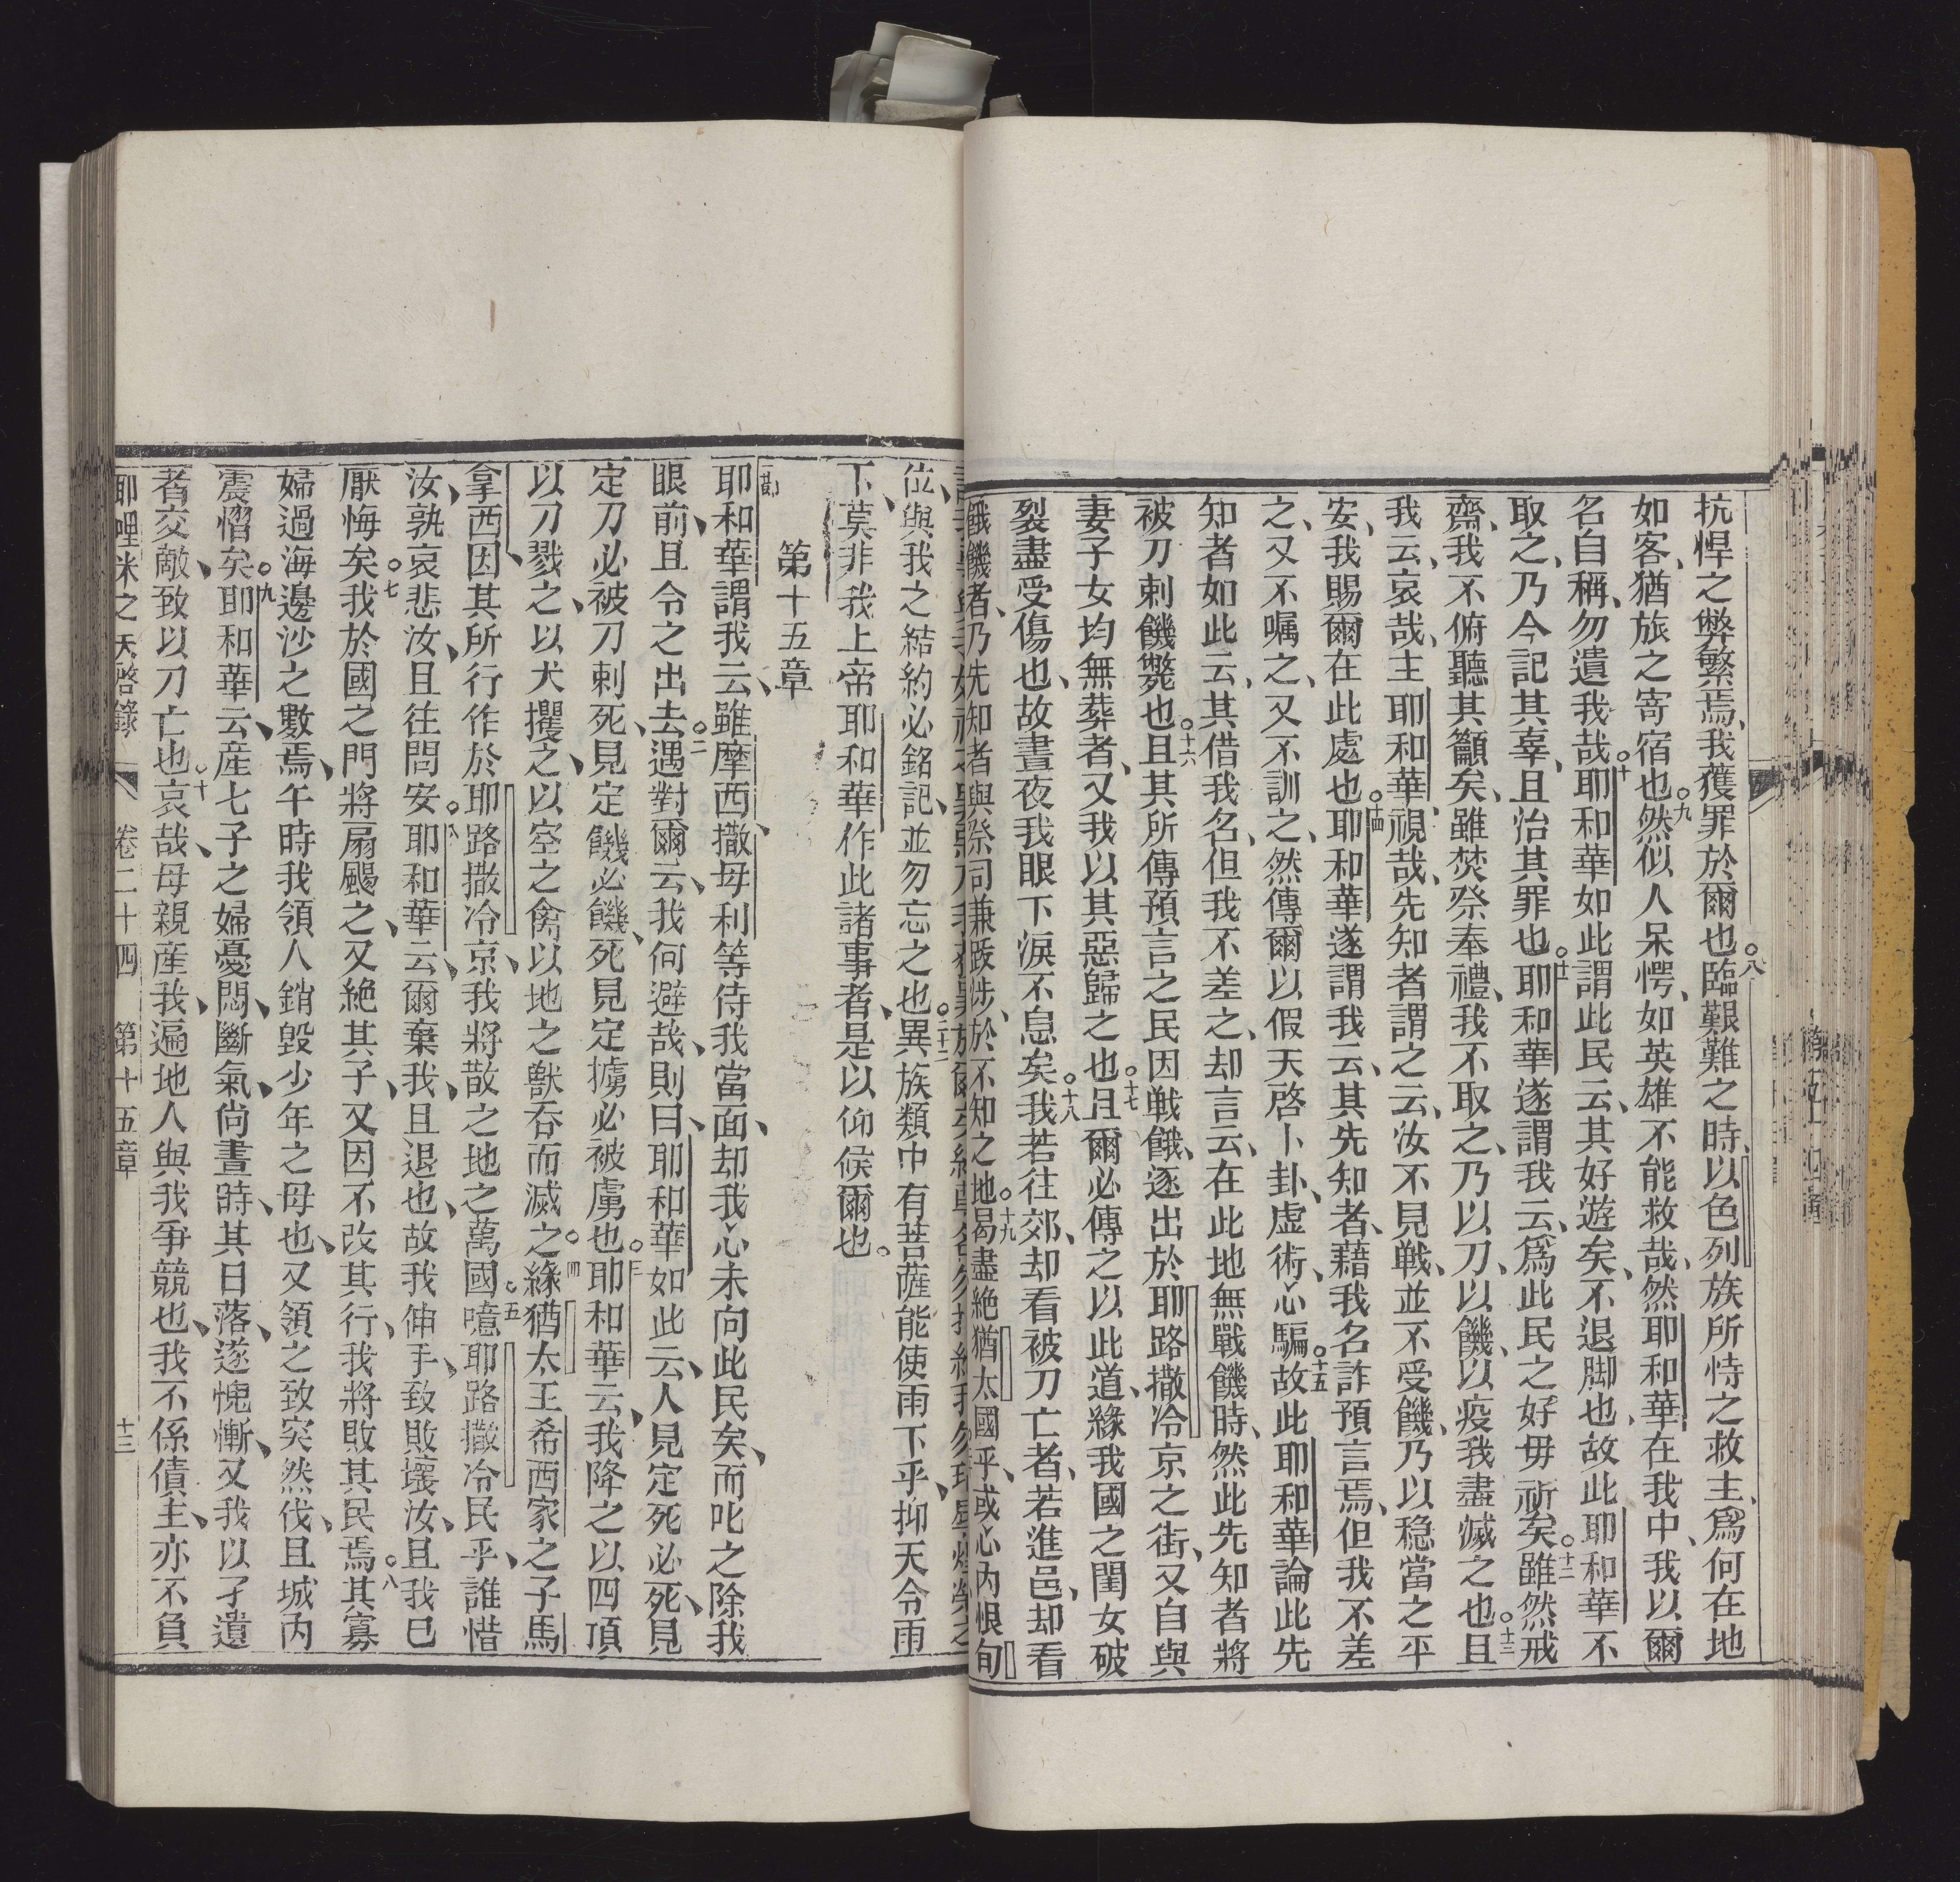 抗悍之弊繁焉、我獲罪於爾也。八臨艱難之時、以色列族所恃之救主、爲何在地
如客、猶旅之寄宿也。九然似人呆愕、如英雄不能救哉、然耶和華在我中、我以爾
名自稱、勿遺我哉。十耶和華如此謂此民云、其好遊矣、不退脚也、故此耶和華不
取之、乃今記其辜、且治其罪也。十一耶和華遂謂我云、爲此民之好毋祈矣。十二雖然戒
齋、我不俯聽其籲矣、雖焚祭奉禮、我不取之、乃以刀、以饑、以疫我盡滅之也。十三且
我云、哀哉、主耶和華、視哉、先知者謂之云、汝不見戰、並不受饑、乃以稳當之平
安、我賜爾在此處也。十四耶和華遂謂我云、其先知者、藉我名詐預言焉、但我不差
之、又不嘱之、又不訓之、然傳爾以假天啓卜卦、虛術、心騙。十五故此耶和華論此先
知者如此云、其借我名、但我不差之、却言云、在此地無戰饑時、然此先知者將
被刀刺饑斃也。十六且其所傳預言之民因戰餓、逐出於耶路撒冷京之街、又自與
妻子女均無葬者、又我以其惡歸之也。十七且爾必傳之以此道、緣我國之閨女破
裂盡受傷也、故晝夜我眼下淚不息矣。十八我若往郊、却看被刀亡者、若進邑、却看
餓饑者、乃先知者與祭司兼跋涉、於不知之地。十九曷盡絶猶太國乎、或心内恨旬
位、與我之結約必銘記、並勿忘之也。二十二異族類中有菩薩能使雨下乎、抑天令雨
下、莫非我上帝耶和華作此諸事者、是以仰候爾也。
第十五章
耶和華謂我云、雖摩西、撒母利等待我當面、却我心未向此民矣、而叱之除我
眼前、且令之出去。二遇對爾云、我何避哉、則曰、耶和華如此云、人見定死必死、見
定刀必被刀刺死、見定饑必饑死、見定擄必被虜也。三耶和華云、我降之以四項
以刀戮之、以犬攫之、以空之禽以地之獸吞而滅之。四緣猶太王希西家之子馬
拿西因其所行作於耶路撒冷京、我將散之地之萬國。五噫耶路撒冷民乎、誰惜
汝、孰哀悲汝、且往問安。六耶和華云、爾棄我、且退也、故我伸手、致敗壞汝、且我已
厭悔矣。七我於國之門將扇颺之、又絶其子、又因不改其行、我將敗其民焉。八其寡
婦過海邊沙之數焉、午時我領人銷毀少年之母也、又領之致突然伐、且城内
震慴矣。九耶和華云、産七子之婦憂悶、斷氣、尚晝時、其日落、遂愧慚、又我以孑遺
者交敵、致以刀亡也。十哀哉、母親産我、遍地人與我爭競也、我不係債主、亦不負
耶哩米之天啓錄 卷二十四 第十五章 十三